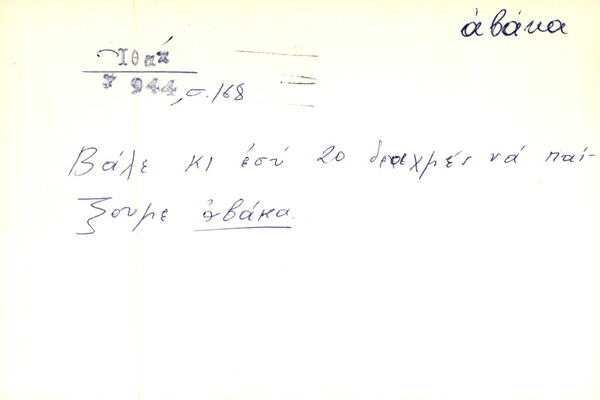 ἀβάκα
Ἰθάκ
944, σ. 168
Βάλε κι ἐσύ 20 δραχμές νά παί-
ξουμε ἀβάκα.